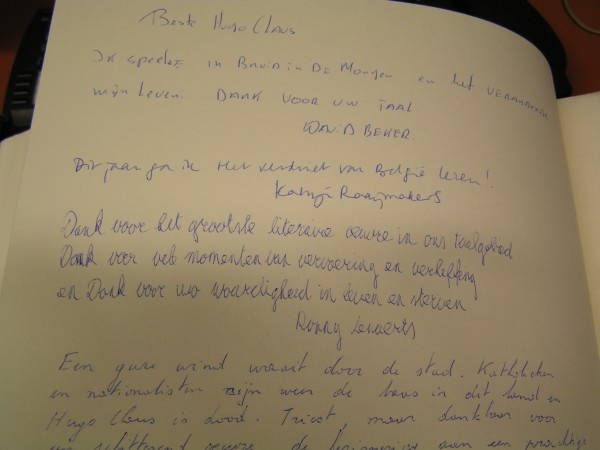 Beste Hugo Claus
Ik speelde in Bruid in De Morgen en het VERANDERDE
mijn leven. DANK VOOR UW TAAL
DAVID BEKER.
Dit jaar ga ik Het verdriet van België lezen!
Katrijn Raaijmakers
Dank voor het grootste literaire œuvre in ons taalgebied
Dank voor vele momenten van vervoering en verheffing
en Dank voor uw waardigheid in leven en sterven
Ronny Lenaerts
Een gure wind waait door de stad. Katholieken
en nationalisten zijn weer de baas in dit land en
Hugo Claus is dood. Triest, maar dankbaar voor
een schitterend oeuvre, de herinnering aan een prachtige